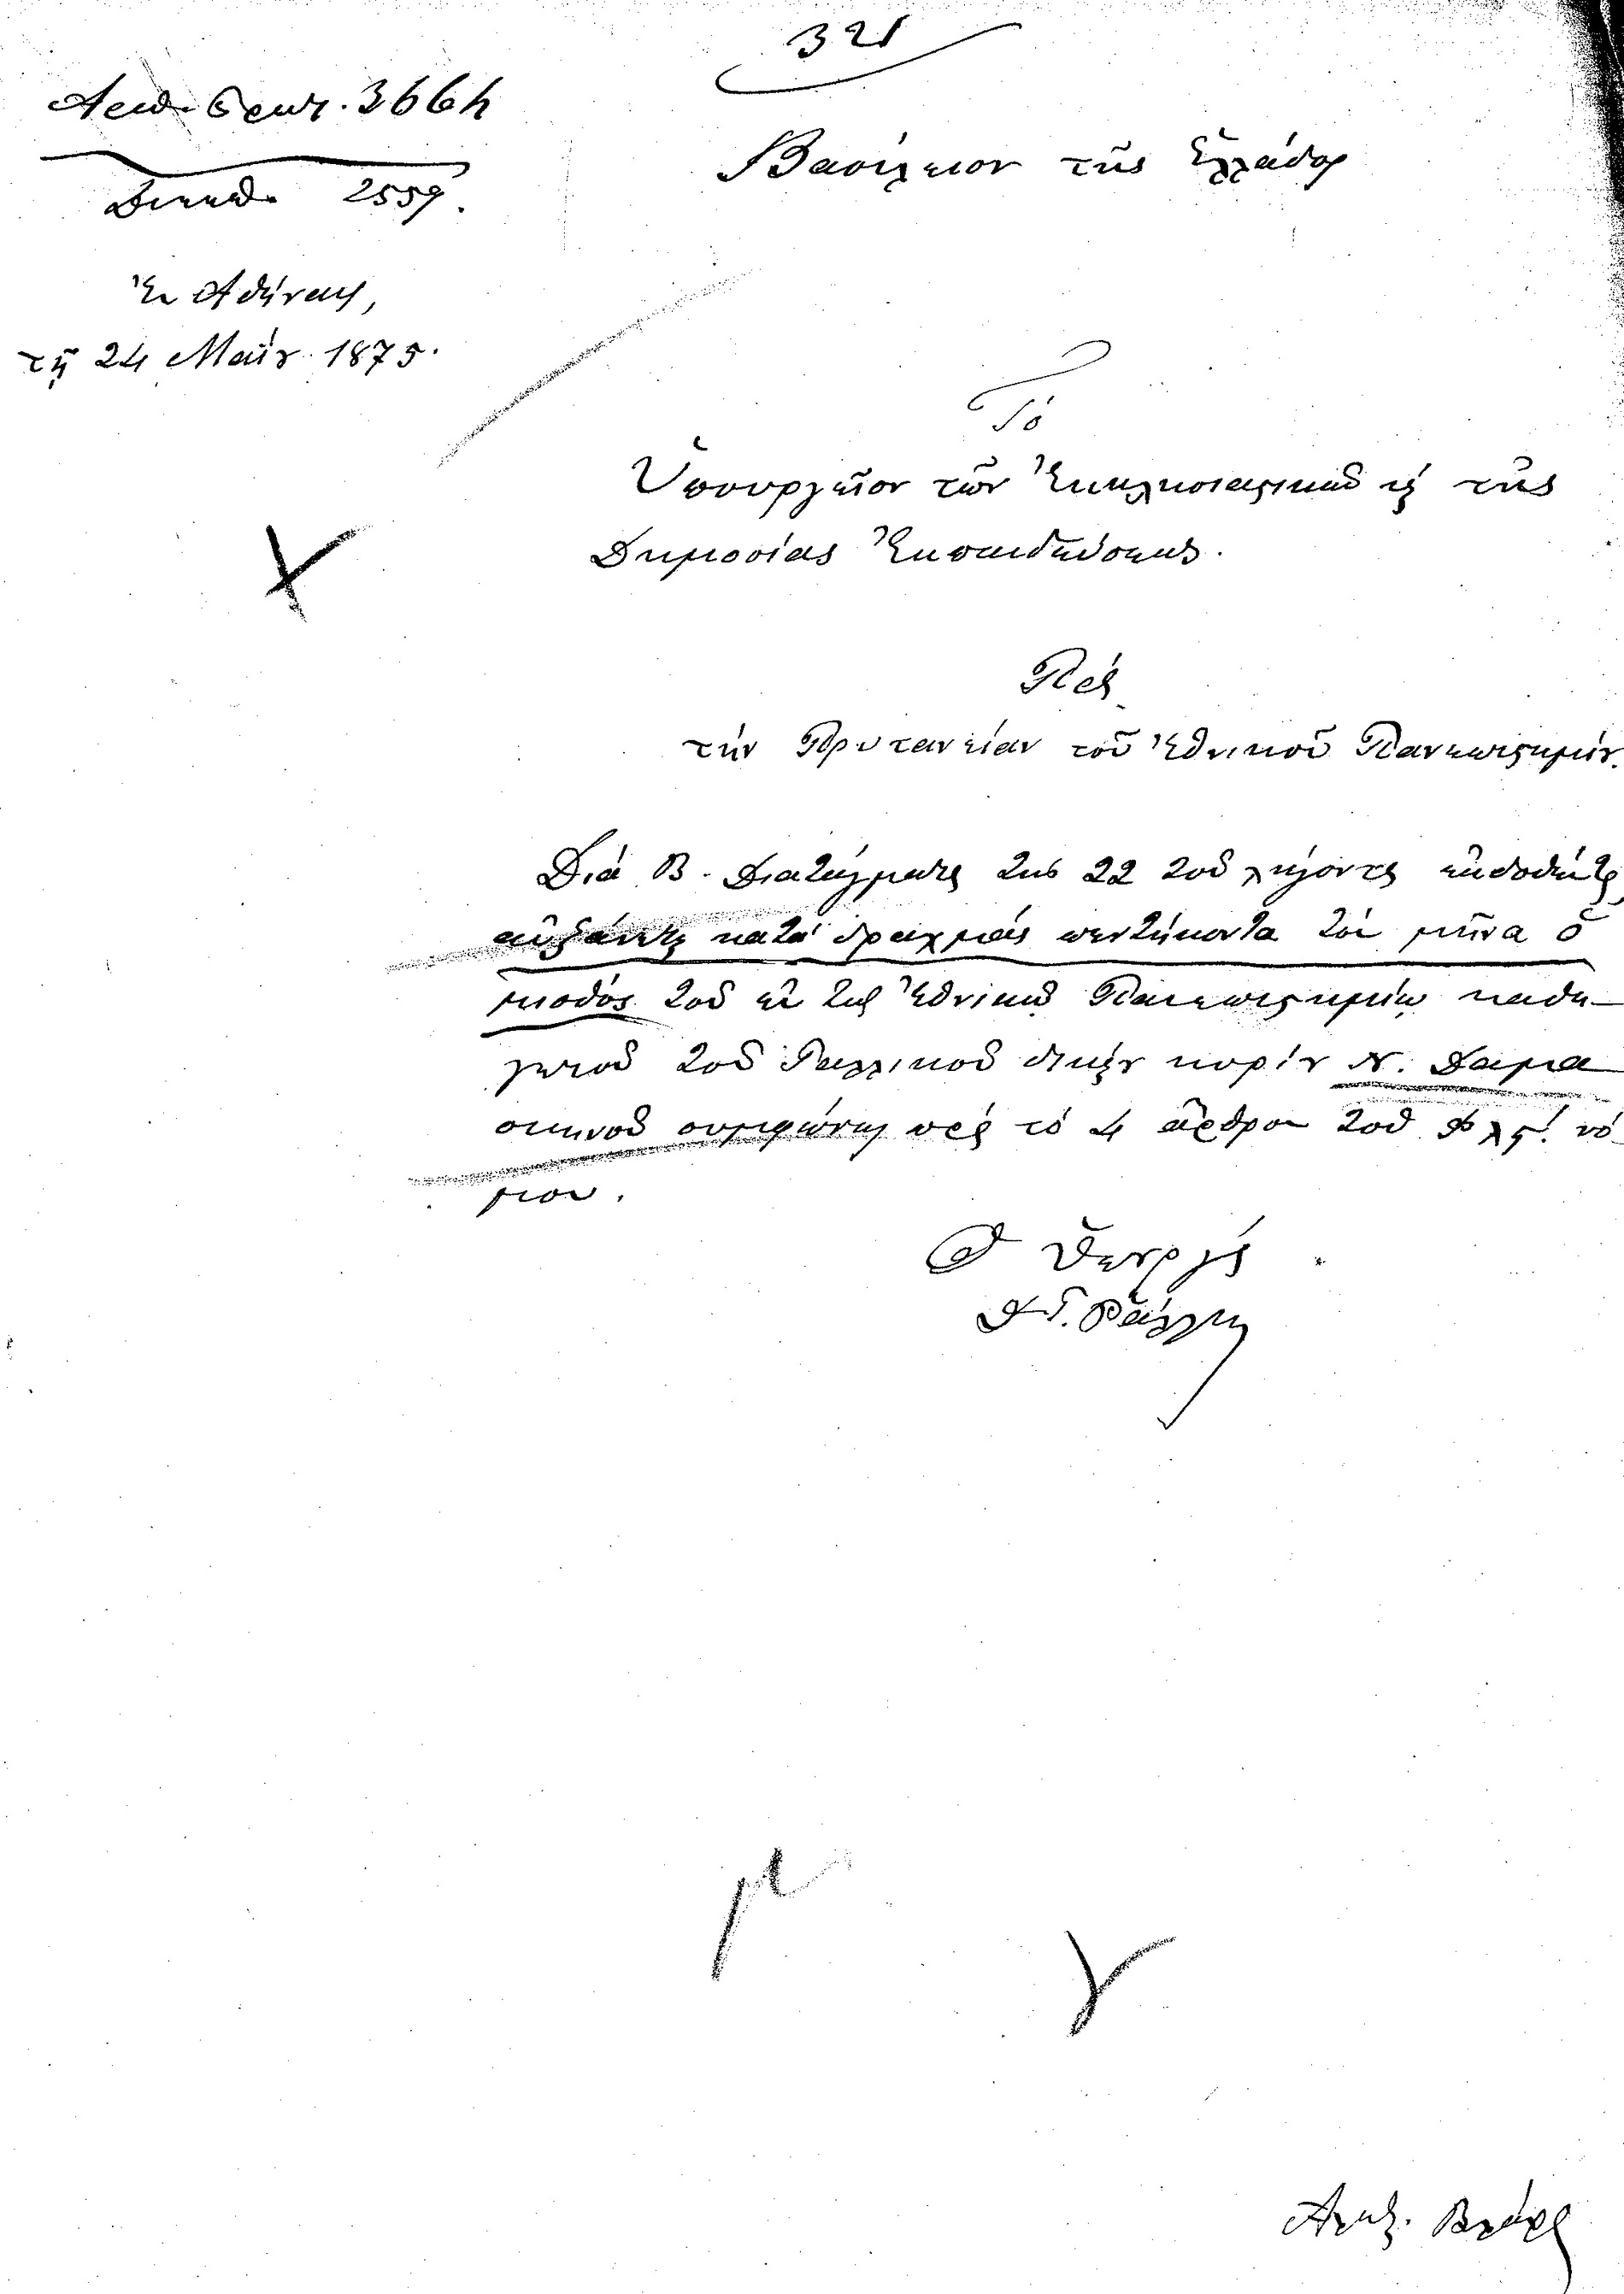 321
Ἀριθ. Πρωτ. 3664
Διεκπ. 2559.
Βασίλειον τῆς Ἑλλάδος
Ἐν Ἀθήναις,
τῇ 24 Μαΐου 1875.
Τὸ
Ὑπουργεῖον τῶν Ἐκκλησιαστικῶν καὶ τῆς
Δημοσίας Ἐκπαιδεύσεως.
Πρὸς
τὴν Πρυτανείαν τοῦ Ἐθνικοῦ Πανεπιστημίου.
Διὰ Β. Διατάγματος τῆς 22 τοῦ λήγοντος ἐκδοθέντος
αὐξάνεται κατὰ δραχμὰς πεντήκοντα τὸν μῆνα ὁ
μισθὸς τοῦ ἐν τῷ Ἐθνικῷ Πανεπιστημίῳ καθη-
γητοῦ τοῦ Γαλλικοῦ δικαίου κυρίου Ν. Δαμα
σκηνοῦ συμφώνως πρὸς τὸ 4 ἄρθρον τοῦ νό
μου.
Ὁ Ὑπουργὸς